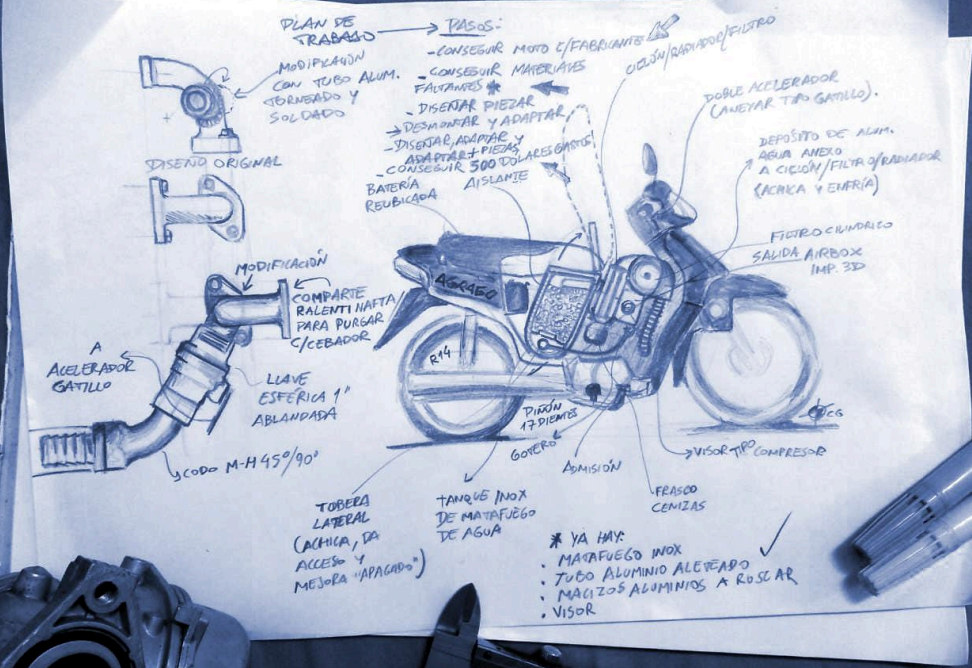 PLAN DE
TRABAJO
PASOS:
- CONSEGUIR MOTO C/FABRICANTE
- CONSEGUIR MATERIALES
FALTANTES *
- DISEÑAR PIEZAR
→ DESMONTAR Y ADAPTAR
- DISEÑAR, ADAPTAR Y
ADAPTAR + PIEZAS
- CONSEGUIR 500 DÓLARES GASTOS
MODIFICACIÓN
CON TUBO ALUM.
TORNEADO Y
SOLDADO
DISEÑO ORIGINAL
CICLÓN/RADIADOR/FILTRO
DOBLE ACELERADOR
(ANEXAR TIPO GATILLO).
DEPÓSITO DE ALUM.
AGUA ANEXO
A CICLÓN/FILTRO/RADIADOR
(ACHICA Y ENFRÍA)
BATERÍA
REUBICADA
AISLANTE
FILTRO CILINDRICO
SALIDA AIRBOX
IMP. 3D
MODIFICACIÓN
COMPARTE
RALENTI NAFTA
PARA PURGAR
C/CEBADOR
AGRAGO
R14
A
ACELERADOR
GATILLO
LLAVE
ESFÉRICA 1"
ABLANDADA
CODO M-H 45°/90°
PIÑÓN
17 DIENTES
GOTERO
ADMISIÓN
CG
VISOR TIPO COMPRESOR
FRASCO
CENIZAS
TOBERA
LATERAL
(ACHICA, DA
ACCESO Y
MEJORA "APAGADO")
TANQUE INOX
DE MATAFUEGO
DE AGUA
* YA HAY:
· MATAFUEGO INOX
· TUBO ALUMINIO ALETEADO
· MACIZOS ALUMINIOS A ROSCAR
· VISOR